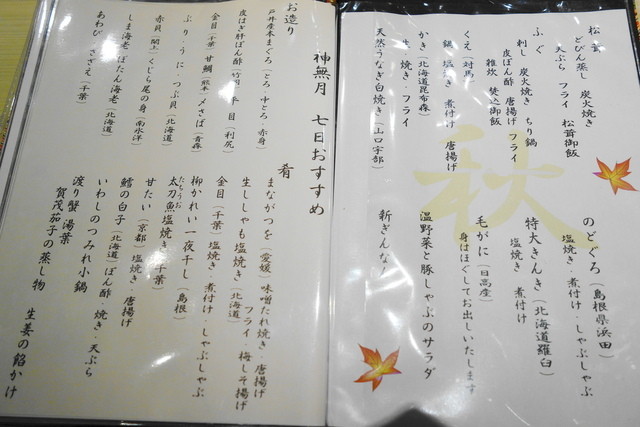 松茸
どびん蒸し 炭火焼き
天ぷら フライ 松茸御飯
ふぐ
刺し 炭火焼き ちり鍋
皮ぽん酢 唐揚げ フライ
雑炊 焚込御飯
くえ(対馬)
鍋 塩焼き 煮付け 唐揚げ
かき(北海道昆布森)
生 焼き・フライ
天然うなぎ白焼き(山口宇部)
秋
のどぐろ(島根県浜田)
塩焼き・煮付け・しゃぶしゃぶ
特大きんき(北海道羅臼)
塩焼き 煮付け
毛がに(日高産)
身はほぐしてお出しいたします
温野菜と豚しゃぶのサラダ
新ぎんなん
神無月 七日おすすめ
お造り
戸井産本まぐろ(とろ・中とろ・赤身)
皮はぎ肝ぽん酢(竹岡)平目(利尻)
金目(千葉)甘鯛(熊本)〆さば(青森)
ぶり・うに・つぶ貝(北海道)
赤貝(閖上)くじら尾の身(南氷洋)
しま海老・ぼたん海老(北海道)
あわび さざえ(千葉)
肴
まながつを(愛媛 味噌たれ焼き・唐揚げ
生ししゃも塩焼き フライ・梅しそ揚げ
(北海道)
金目(千葉)塩焼き・煮付け・しゃぶしゃぶ
柳かれい一夜干し(島根)
たちうお
太刀魚塩焼き(千葉)
甘たい(京都)塩焼き・唐揚げ
鱈の白子(北海道)ぽん酢・焼き・天ぷら
いわしのつみれ小鍋
渡り蟹湯葉
賀茂茄子の蒸し物 生姜の餡かけ